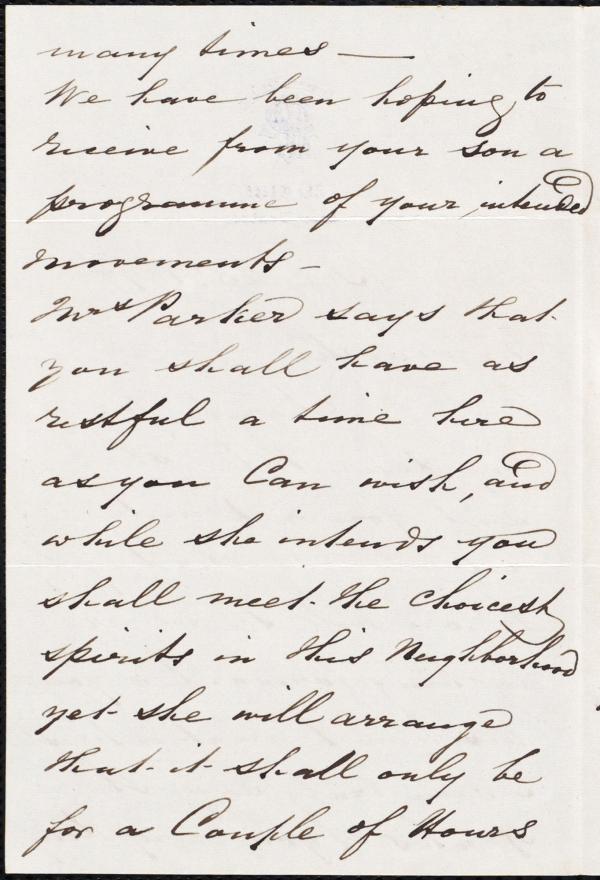 many times —
We have been hoping to
receive from your son a
programme of your intended
movements —
Mrs Parker says that
you shall have as
restful a time here
as you Can wish, and
while she intends you
shall meet the choicest
spirits in this Neighborhood
yet she will arrange
that it shall only be
for a Couple of Hours